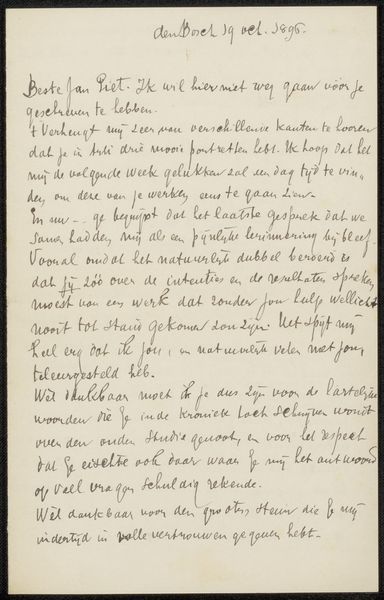 den Bosch 19 oct. 1896.
Beste Jan Piet. Ik wil hier niet weg gaan vóór je
geschreven te hebben.
't Verheugt mij zeer van verschillende kanten te hooren
dat je in Arti drie mooie portretten hebt. Ik hoop dat het
mij de volgende week gelukken zal een dag tijd te vin-
den om deze van je werken eens te gaan zien.
En nu - .. je begrijpt dat het laatste gesprek dat we
samen hadden mij als een pijnlijke herinnering bijbleef.
Vooral omdat het natuurlijk dubbel beroerd is
dat jij zóó over de intenties en de resultaten spreken
moest van een werk dat zonder jou hulp wellicht
nooit tot stand gekomen zou zijn. Het spijt mij
heel erg dat ik jou, en natuurlijk velen met jou,
teleurgesteld heb.
Wèl dankbaar moet ik je dus zijn voor de hartelijke
woorden die je in de Kroniek toch schrijven wou
over den ouden studie genoot, en voor het respect
dat je eischte ook daar waar je mij het antwoord
op veel vragen schuldig rekende.
Wèl dankbaar voor den grooten steun die je mij
indertijd in volle vertrouwen gegeven hebt.